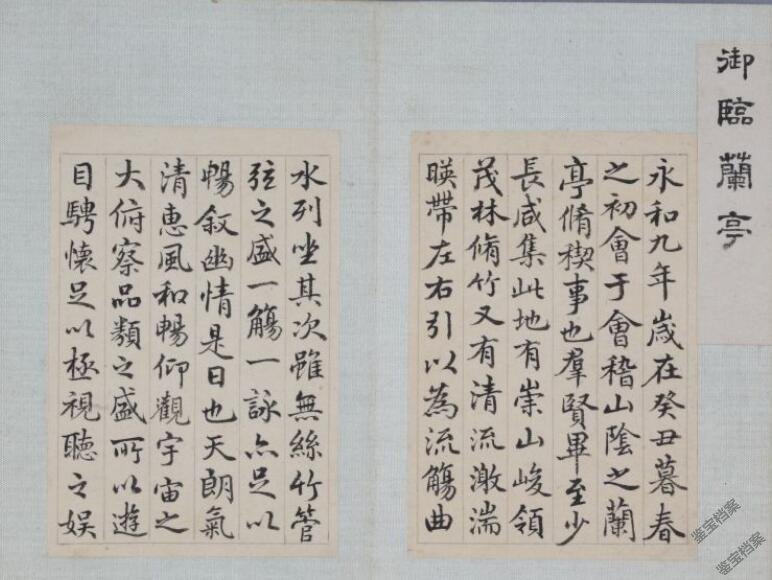 御臨蘭亭
永和九年歲在癸丑暮春
之初會于會稽山陰之蘭
亭脩稧事也羣賢畢至少
長咸集此地有崇山峻領
茂林脩竹又有清流激湍
暎帶左右引以為流觴曲
水列坐其次雖無絲竹管
弦之盛一觴一詠亦足以
暢叙幽情是日也天朗氣
清惠風和暢仰觀宇宙之
大俯察品類之盛所以遊
目騁懷足以極視聽之娱
鉴宝档案
鉴宝档案